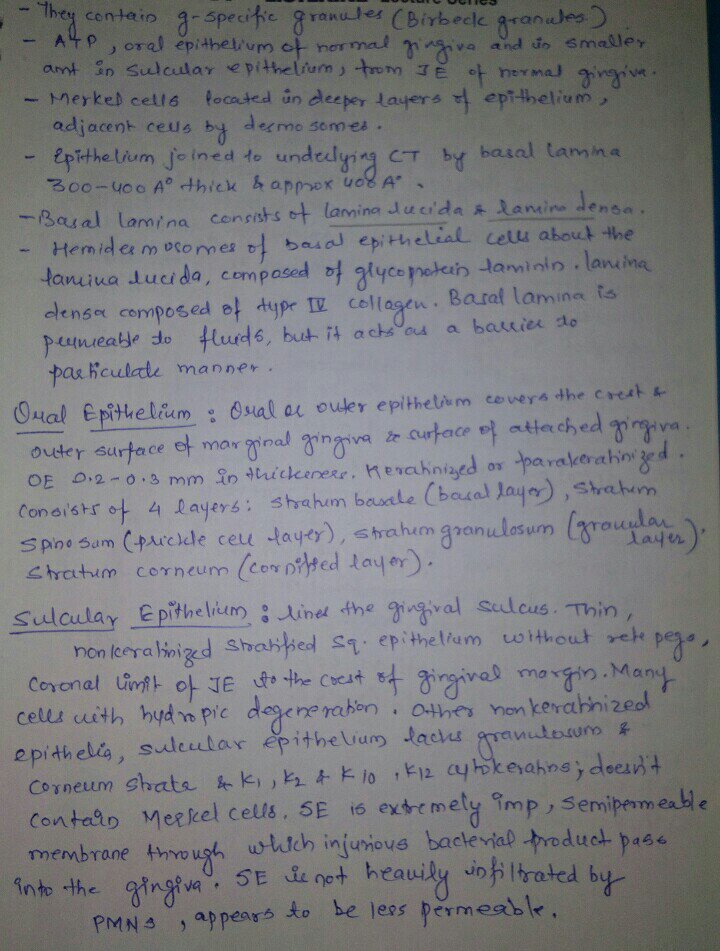 Lecture Series
- They contain g-specific granules (Birbeck granules)
- ATP, oral epithelium of normal gingiva and in smaller
amt in sulcular epithelium, from JE of normal gingiva.
- Merkel cells located in deeper layers of epithelium,
adjacent cells by desmosomes.
- Epithelium joined to underlying CT by basal lamina
300-400 A° thick & approx 400 A°.
- Basal lamina consists of lamina lucida & lamina densa.
- Hemidesmosomes of basal epithelial cells about the
lamina lucida, composed of glycoprotein laminin. lamina
densa composed of type IV collagen. Basal lamina is
permeable to fluids, but it acts as a barrier to
particulate manner.
Oral Epithelium : Oral or outer epithelium covers the crest &
outer surface of marginal gingiva & surface of attached gingiva.
OE 0.2-0.3 mm in thickness. Keratinized or parakeratinized.
Consists of 4 layers: stratum basale (basal layer), stratum
spinosum (prickle cell layer), stratum granulosum (granular layer),
stratum corneum (cornified layer).
Sulcular Epithelium : lines the gingival sulcus. Thin,
nonkeratinized stratified sq. epithelium without rete pegs,
coronal limit of JE to the crest of gingival margin. Many
cells with hydropic degeneration. Other nonkeratinized
epithelia, sulcular epithelium lacks granulosum &
corneum strata & K1, K2 & K10, K12 cytokeratins; doesn't
contain Merkel cells. SE is extremely imp, semipermeable
membrane through which injurious bacterial product pass
into the gingiva. SE is not heavily infiltrated by
PMNs, appears to be less permeable.